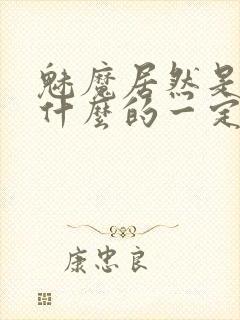 魅魔居然是
什麼的一定
康忠良